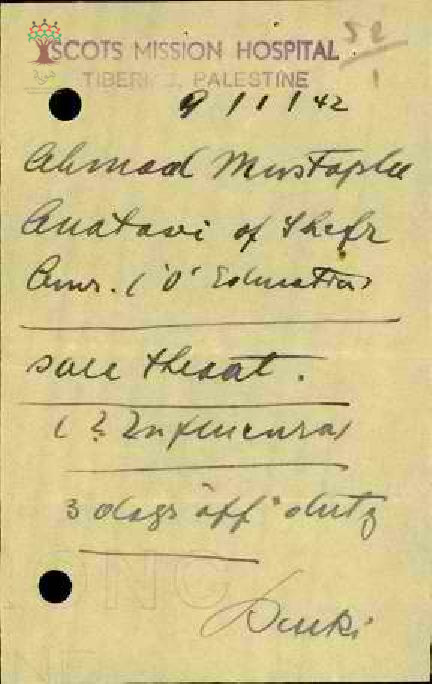 52
SCOTS MISSION HOSPITAL
1
TIBERIAS, PALESTINE
9/1/42
Ahmad Mustapha
Anatavi of Shefr
Amr. ('O' Education)
sore throat.
(? Influenza)
3 days "off" duty